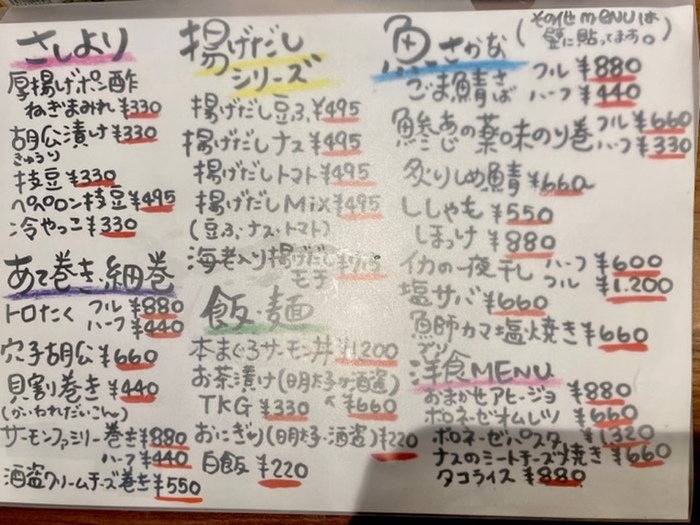 さしより
厚揚げポン酢
ねぎまみれ ¥330
胡瓜漬け ¥330
きゅうり
枝豆 ¥330
ペペロン枝豆 ¥495
冷やっこ ¥330
あて巻き、細巻
トロたく フル ¥880
ハーフ ¥440
穴子胡瓜 ¥660
貝割巻き ¥440
(かいわれだいこん)
サーモンファミリー巻き ¥880
ハーフ ¥440
酒盗クリームチーズ巻き ¥550
揚げだし
シリーズ
揚げだし豆ふ ¥495
揚げだしナス ¥495
揚げだしトマト ¥495
揚げだしMix ¥495
(豆ふ、ナス、トマト)
海老入り揚げだし
モチ
飯・麺
本まぐろサーモン丼 ¥1200
お茶漬け(明太子or酒盗)
TKG ¥330 ¥660
おにぎり(明太子・酒盗) ¥220
白飯 ¥220
魚 さかな
(その他MENUは
壁に貼ってます。)
ごま鯖さば フル ¥880
ハーフ ¥440
鯵あじの薬味のり巻 フル ¥660
ハーフ ¥330
炙りしめ鯖 ¥660
ししゃも ¥550
ほっけ ¥880
イカの一夜干し ハーフ ¥600
フル ¥1.200
塩サバ ¥660
魚師カマ塩焼き ¥660
ブリ
洋食MENU
おまかせアヒージョ ¥880
ボロネーゼオムレツ ¥660
ボロネーゼパスタ ¥1,320
ナスのミートチーズ焼き ¥660
タコライス ¥880